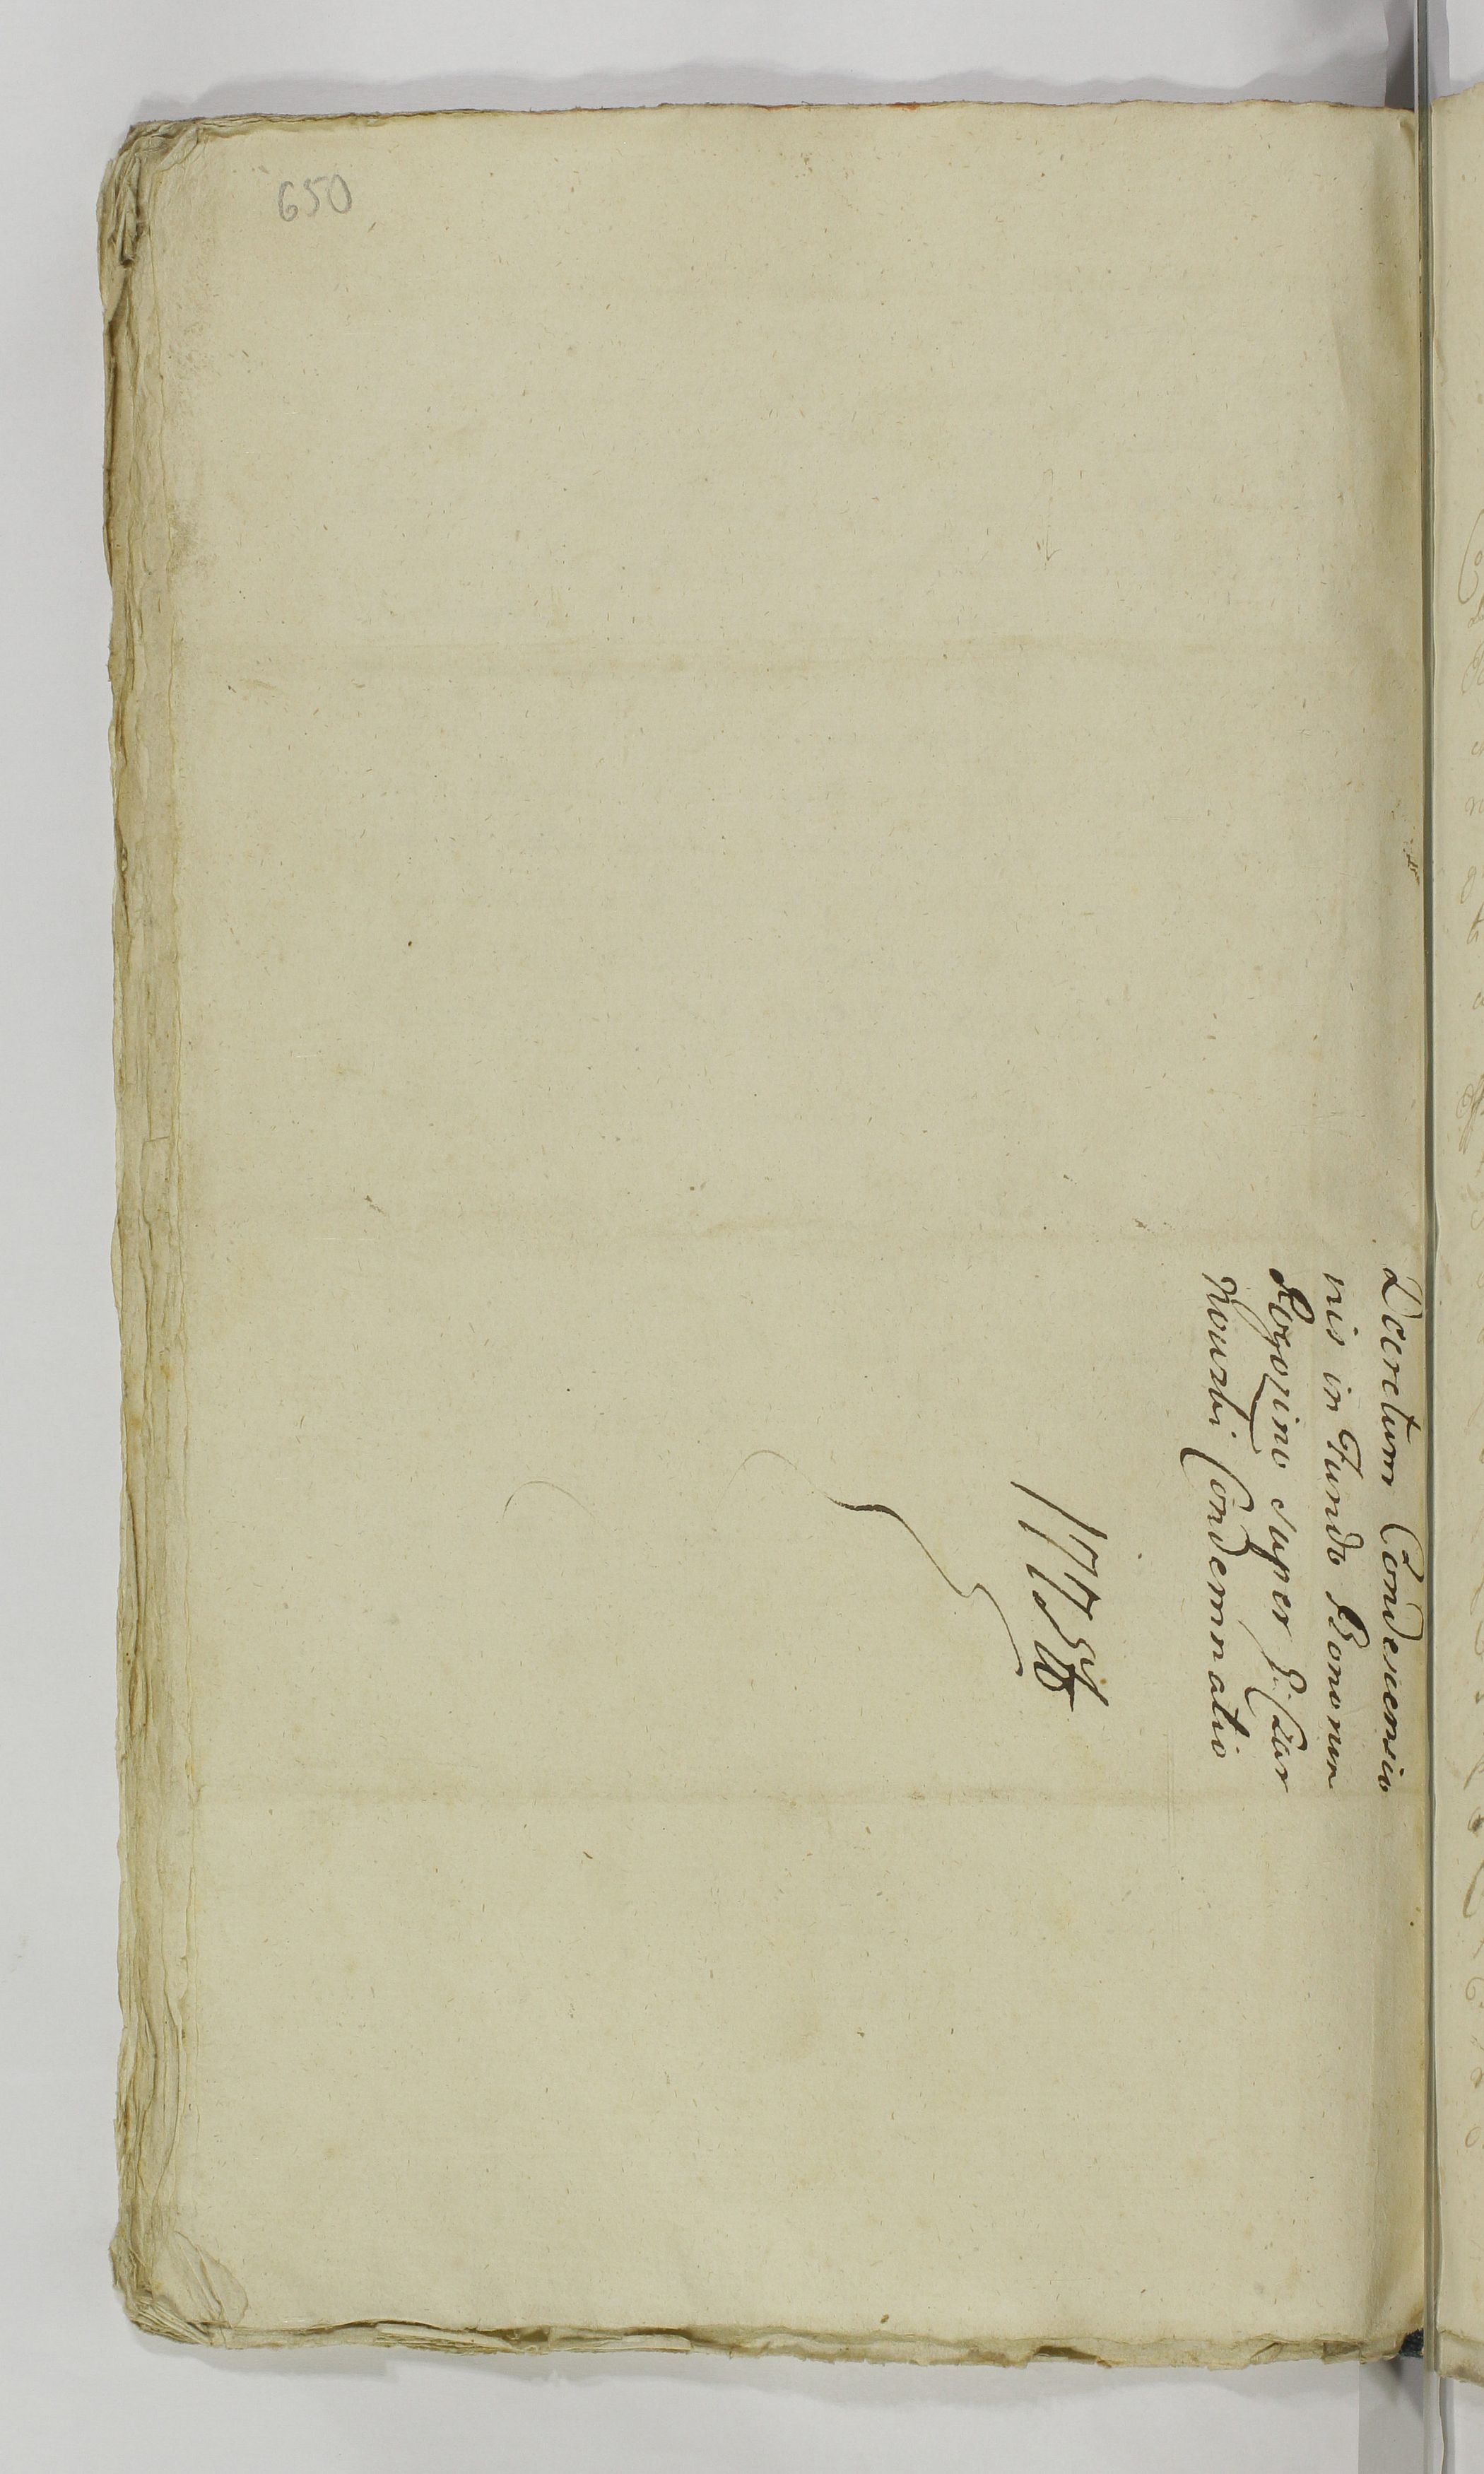 650
Decretum Condescensio
nis in Fundo Bonorum
Rogozino super
Kowski Condemnatio